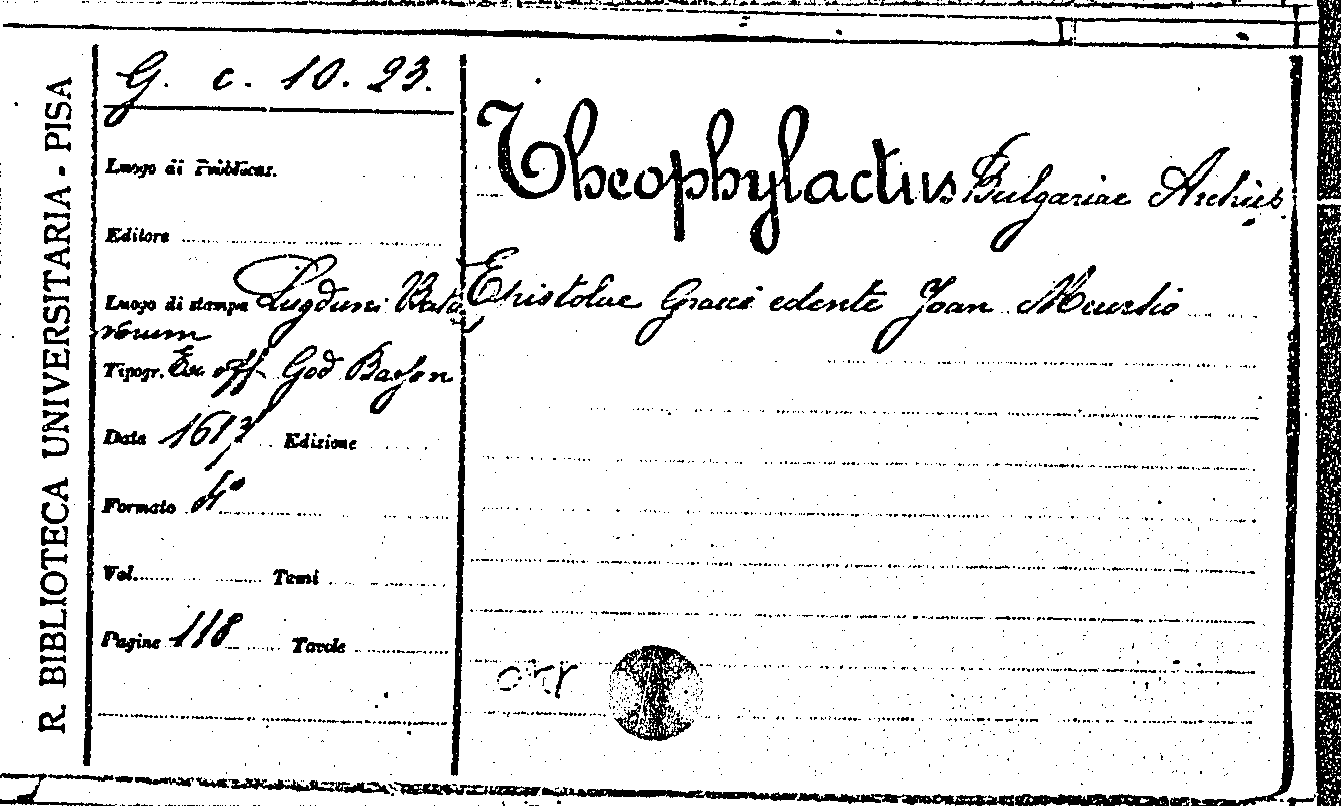 R. BIBLIOTECA UNIVERSITARIA - PISA
G. c. 10. 23.
Luogo di Pubblicaz.
Editore
Luogo di stampa Lugduni Bata
vorum
Tipogr. Ex off. God Basson
Data 1617 Edizione
Formato 4°
Vol. Tomi
Pagine 118 Tavole
Theophylactus Bulgariae Archiep.
Epistolae Graece edente Joan Meursio